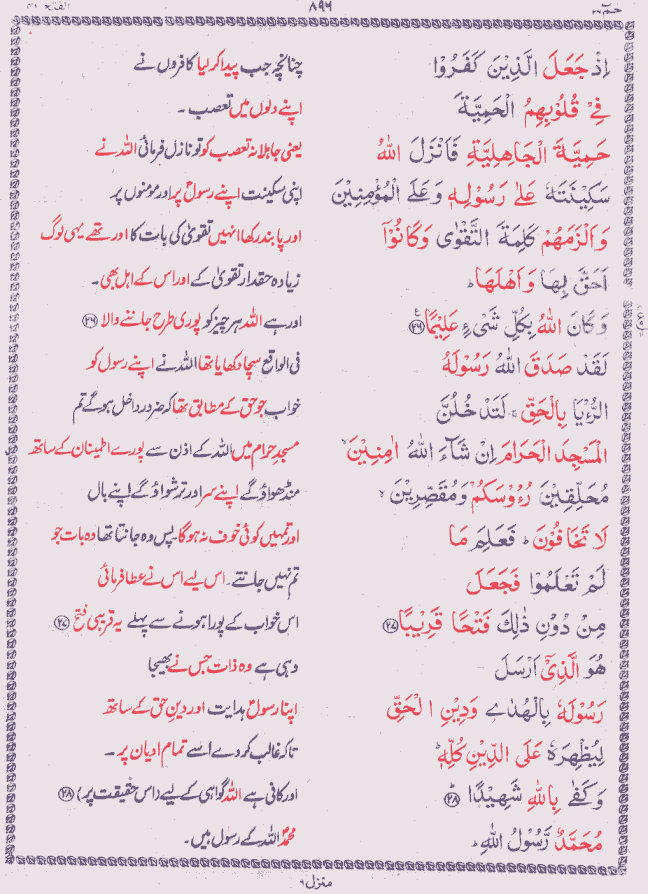 حم ٢٦ ٨٩٦ الفتح ٤٨
اِذْ جَعَلَ الَّذِيْنَ كَفَرُوْا چنانچہ جب پیدا کرلیا کافروں نے
فِيْ قُلُوْبِهِمُ الْحَمِيَّةَ اپنے دلوں میں تعصب ۔
حَمِيَّةَ الْجَاهِلِيَّةِ فَاَنْزَلَ اللهُ یعنی جاہلانہ تعصب کو تو نازل فرمائی اللہ نے
سَكِيْنَتَهٗ عَلٰى رَسُوْلِهٖ وَعَلَى الْمُؤْمِنِيْنَ اپنی سکینت اپنے رسولؐ پر اور مومنوں پر
وَاَلْزَمَهُمْ كَلِمَةَ التَّقْوٰى وَكَانُوْٓا اور پابند رکھا انہیں تقویٰ کی بات کا اور تھے یہی لوگ
اَحَقَّ بِهَا وَاَهْلَهَا ؕ زیادہ حقدار تقویٰ کے اور اس کے اہل بھی ۔
وَكَانَ اللهُ بِكُلِّ شَيْءٍ عَلِيْمًا ﴿٢٦﴾ اور ہے اللہ ہر چیز کو پوری طرح جاننے والا ﴿٢٦﴾
لَقَدْ صَدَقَ اللهُ رَسُوْلَهُ فی الواقع سچا دکھایا تھا اللہ نے اپنے رسول کو
الرُّءْيَا بِالْحَقِّ ۚ لَتَدْخُلُنَّ خواب جو حق کے مطابق تھا کہ ضرور داخل ہوگے تم
الْمَسْجِدَ الْحَرَامَ اِنْ شَآءَ اللهُ اٰمِنِيْنَ ۙ مسجدِ حرام میں اللہ کے اذن سے پورے اطمینان کے ساتھ
مُحَلِّقِيْنَ رُءُوْسَكُمْ وَمُقَصِّرِيْنَ ۙ منڈھواؤ گے اپنے سر اور ترشواؤ گے اپنے بال
لَا تَخَافُوْنَ ؕ فَعَلِمَ مَا اور تمہیں کوئی خوف نہ ہوگا۔ پس وہ جانتا تھا وہ بات جو
لَمْ تَعْلَمُوْا فَجَعَلَ تم نہیں جانتے۔ اس لیے اس نے عطا فرمائی
مِنْ دُوْنِ ذٰلِكَ فَتْحًا قَرِيْبًا ﴿٢٧﴾ اس خواب کے پورا ہونے سے پہلے یہ قریبی فتح ﴿٢٧﴾
هُوَ الَّذِيْٓ اَرْسَلَ وہی ہے وہ ذات جس نے بھیجا
رَسُوْلَهٗ بِالْهُدٰى وَدِيْنِ الْحَقِّ اپنا رسولؐ ہدایت اور دینِ حق کے ساتھ
لِيُظْهِرَهٗ عَلَى الدِّيْنِ كُلِّهٖ ؕ تاکہ غالب کردے اسے تمام ادیان پر ۔
وَكَفٰى بِاللهِ شَهِيْدًا ﴿٢٨﴾ اور کافی ہے اللہ گواہی کے لیے (اس حقیقت پر) ﴿٢٨﴾
مُحَمَّدٌ رَّسُوْلُ اللهِ ؕ محمدؐ اللہ کے رسول ہیں۔
منزل ٦